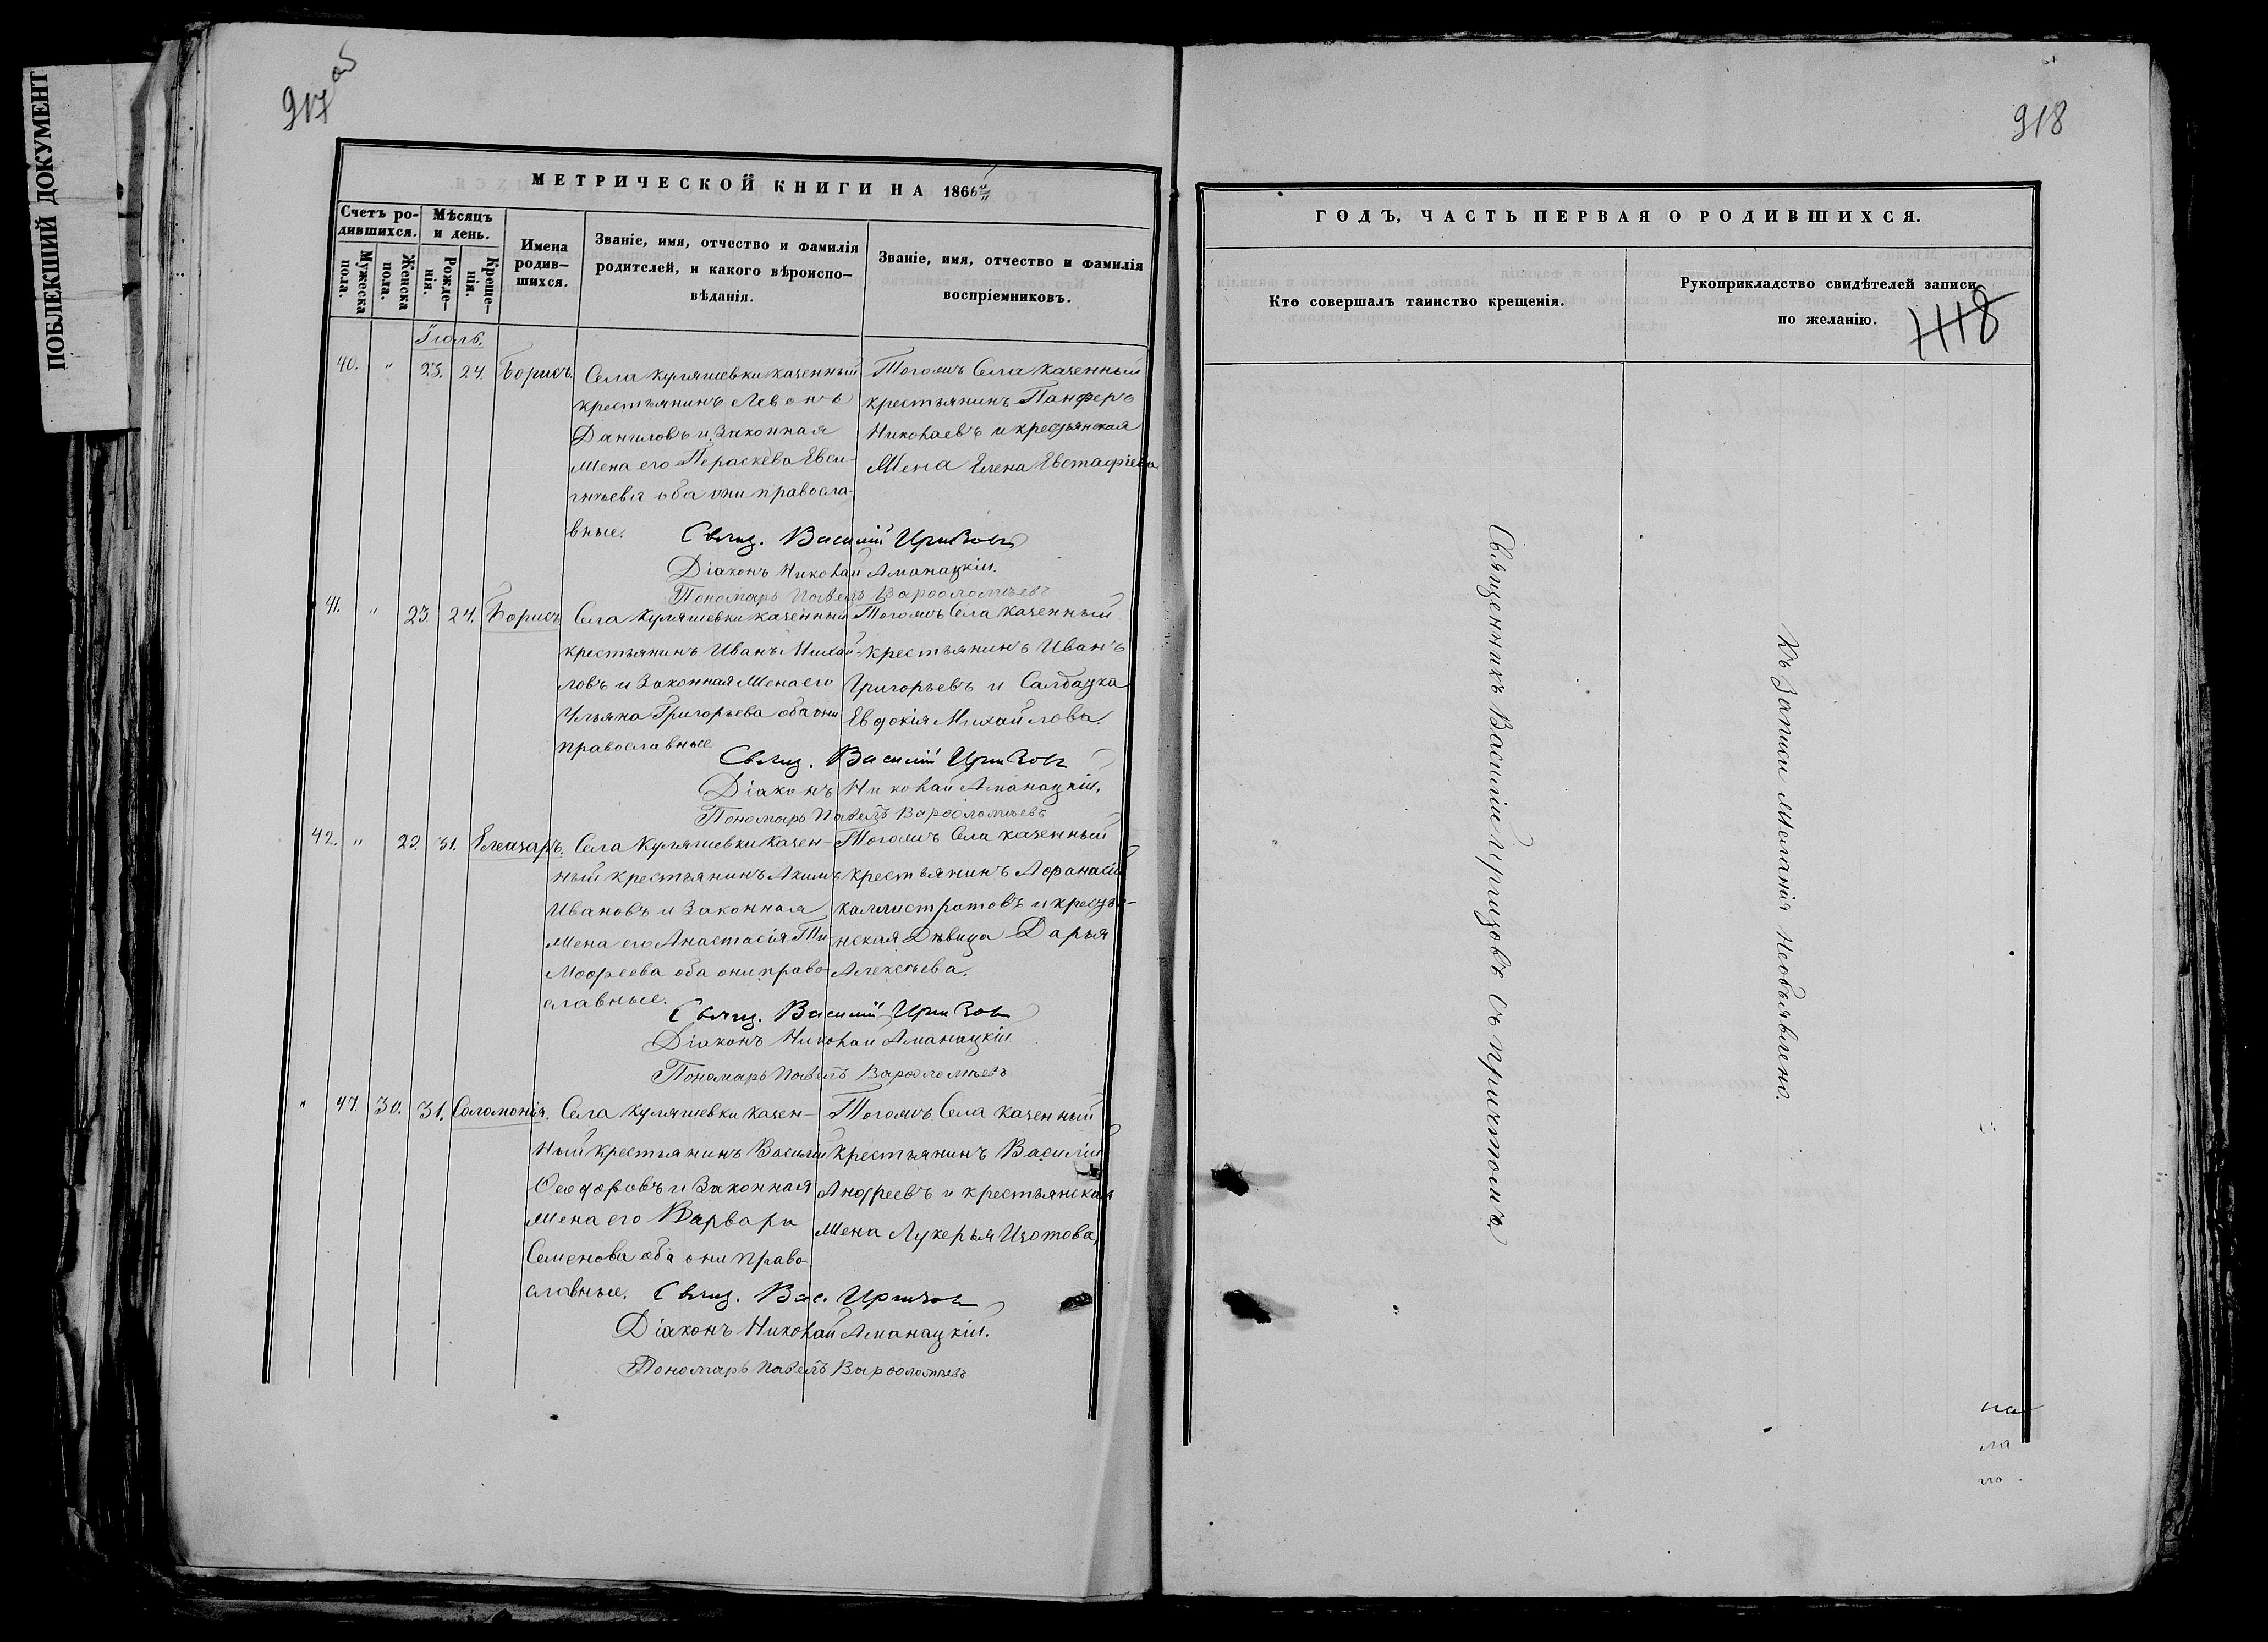 ПОБЛЕКШИЙ ДОКУМЕНТ
917 об
МЕТРИЧЕСКОЙ КНИГИ НА 1866й
Счетъ ро-
дившихся.
Мужеска
пола.
Женска
пола.
Мѣсяцъ
и день.
Рожде-
нія.
Креще-
нія.
Имена
родив-
шихся.
Званіе, имя, отчество и фамилія
родителей, и какого вѣроиспо-
вѣданія.
Званіе, имя, отчество и фамилія
воспріемниковъ.
Іюль.
40. " 23. 24. Борисъ.
Села Куляшевки казенный
крестьянинъ Левонъ
Даниловъ и Законная
Жена его Пераскева Евси-
гнѣева оба они правосла-
вные.
Тогожъ Села казенный
крестьянинъ Панферъ
Николаевъ и кресьянская
Жена Елена Евстафіева
Свящ. Василій Иргизовъ
Діаконъ Николай Аманацкій.
Пономарь Павелъ Варфоломѣевъ
41. " 23. 24. Борисъ
Села Куляшевки казенный
крестьянинъ Иванъ Михай-
ловъ и Законная Жена его
Ульяна Григорьева оба они
православные
Тогожъ Села казенный
крестьянинъ Иванъ
Григорьевъ и Салдацка
Евдокія Михайлова.
Свящ. Василій Иргизовъ
Діаконъ Николай Аманацкій.
Пономарь Павелъ Варфоломѣевъ
42. " 29. 31. Елеазаръ.
Села Куляшевки Казен-
ный крестьянинъ Акимъ
Ивановъ и Законная
Жена его Анастасія Ти-
мофеева оба они право-
славные.
Тогожъ Села казенный
крестьянинъ Афанасій
Каллистратовъ и кресья-
нская Дѣвица Дарья
Алексѣева.
Свящ. Василій Иргизовъ
Діаконъ Николай Аманацкій
Пономарь Павелъ Варфоломѣевъ
" 47. 30. 31. Соломонія.
Села Куляшевки Казен-
ный крестьянинъ Василій
Феодоровъ и Законная
Жена его Варвара
Семенова оба они право-
славные.
Тогожъ Села казенный
крестьянинъ Василій
Андреевъ и крестьянская
Жена Лукерья Изотова,
Свящ. Вас. Иргизовъ
Діаконъ Николай Аманацкій.
Пономарь Павелъ Варфоломѣевъ
918
ГОДЪ, ЧАСТЬ ПЕРВАЯ О РОДИВШИХСЯ.
Кто совершалъ таинство крещенія.
Рукоприкладство свидѣтелей записи
по желанію.
1118
Священникъ Василій Иргизовъ съ причтомъ
Къ Записи Желанія Необъявлено.
на
ла
го